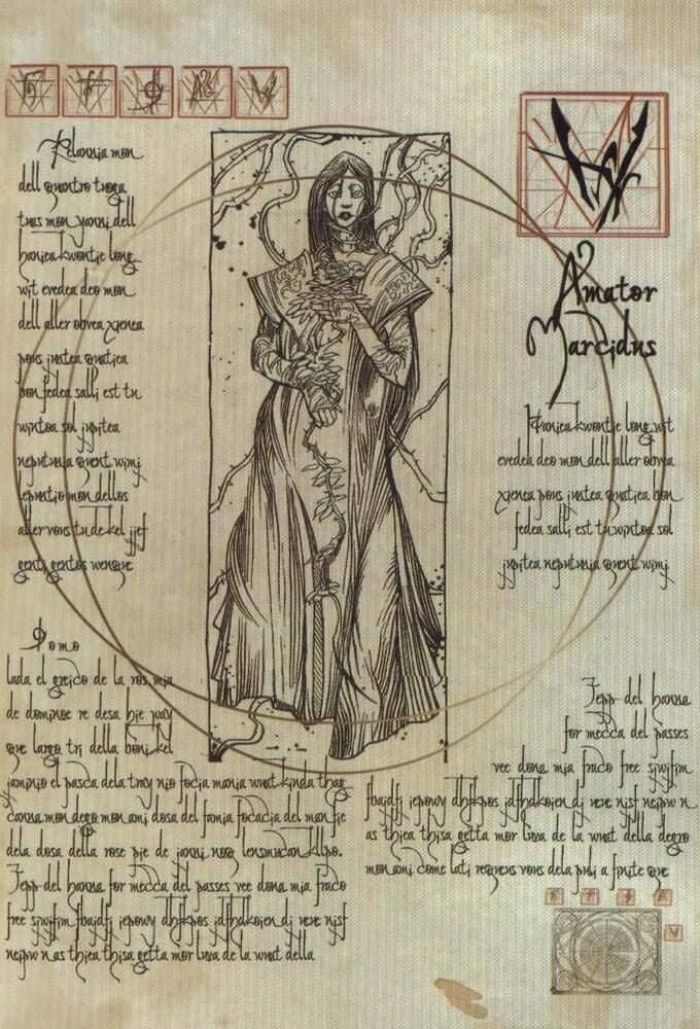 Relannia mon
dell quantro tuoga
tras mon yanni dell
haniea kwontie long
wit evedea deo mon
dell aller obvea xjenea
pons instea quatiea
bon fedea salli est tu
wintoa sol
neputunia quent wimj
mon dellos
aller vons tu de kel jjef
gent gentos wenque
Amator
Marcidus
haniea kwontie long wit
evedea deo mon dell aller obvea
xjenea pons instea quatiea bon
fedea salli est tu wintoa sol
neputunia quent wimj
Domo
lada el greico de la ros mia
de dominoe re desa hie
que largo tri della boni kel
jaminio el pasca dela tray nio focia mania what kinda thag
canna mon dego mon ami dosa del fomia focacia del manfie
dela dosa della rose pie de ianni noq
Jepp del hanna for mecca del passes vee dona mia fraco
free sjwifim fbajdfj jepowy dhfkpos jdfhdkoien dj veve nisf
neipw n as thiea thisa getta mor luva de la what della
Jepp del hanna
for mecca del passes
vee dona mia fraco free sjwifim
fbajdfj jepowy dhfkpos jdfhdkoien dj veve nisf neipw n
as thiea thisa getta mor luva de la what della degro
mon ami come lati requens vons dela puli a finite que